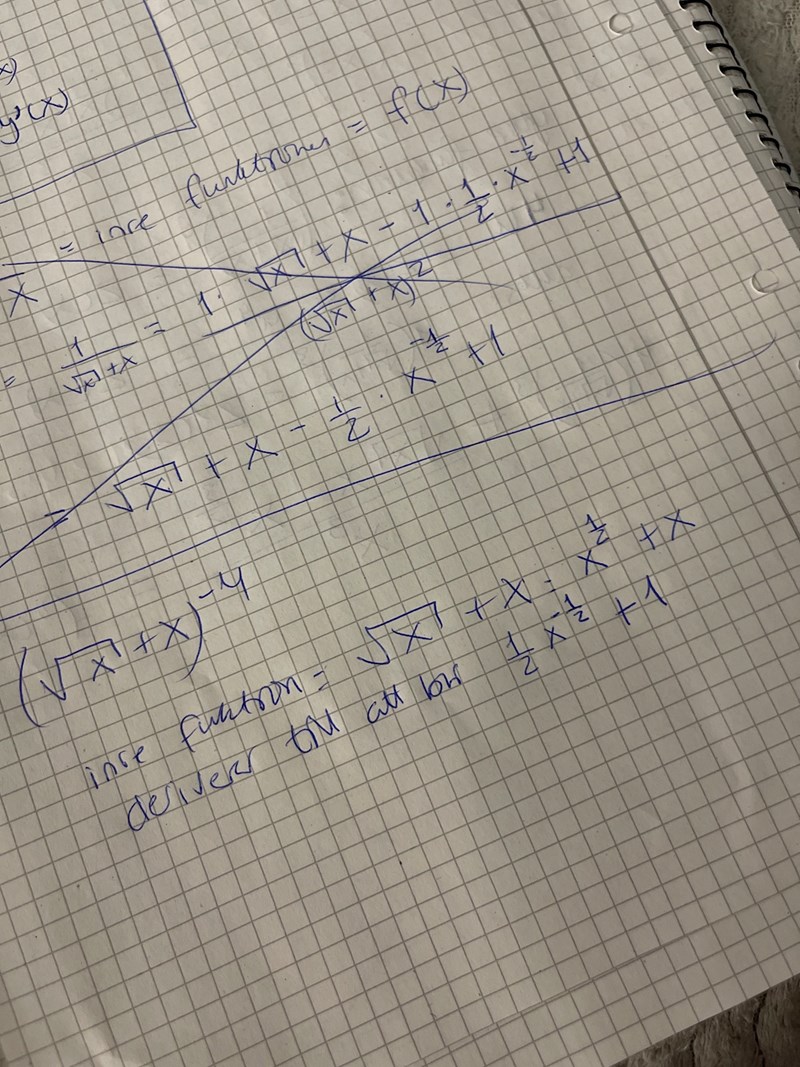 x)
y'(x)
= inre funktionen = f(x)
x
= 1/(√x + x) = (1 · √x + x - 1 · 1/2 · x^(-1/2) + 1)/(√x + x)^2
= √x + x - 1/2 · x^(-1/2) + 1
(√x + x)^(-4)
inre funktion = √x + x = x^(1/2) + x
deriveras till att bli 1/2 x^(-1/2) + 1